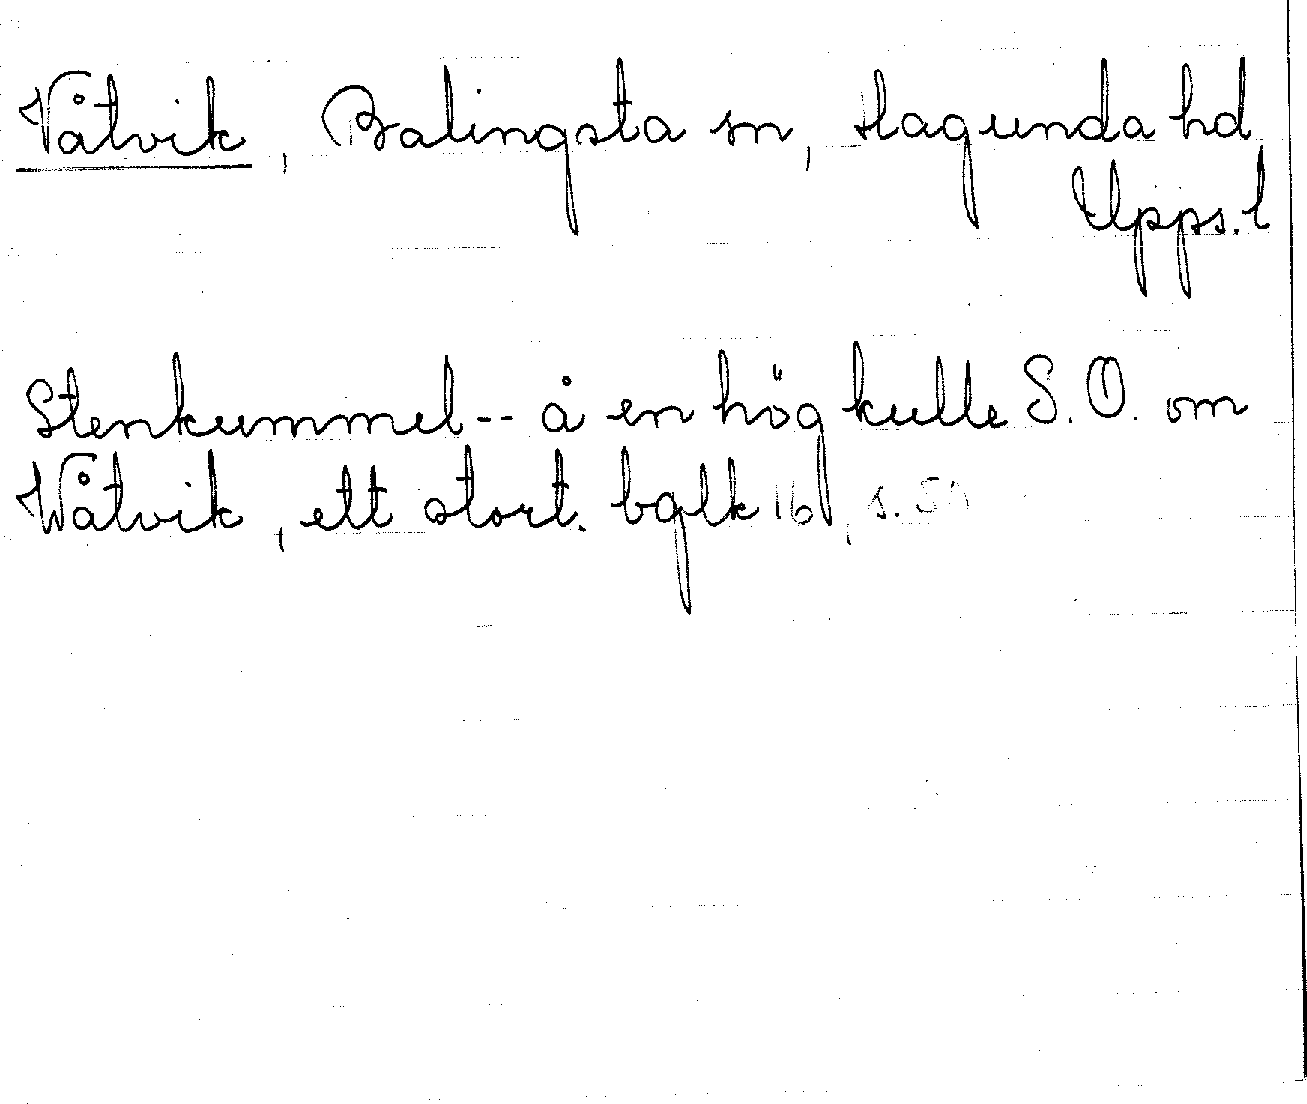 Våtvik, Balingsta sn, Hagunda hd
Upps. l
Stenkummel -- å en hög kulle S.O. om
Wåtvik, ett stort. bglk 16, s.